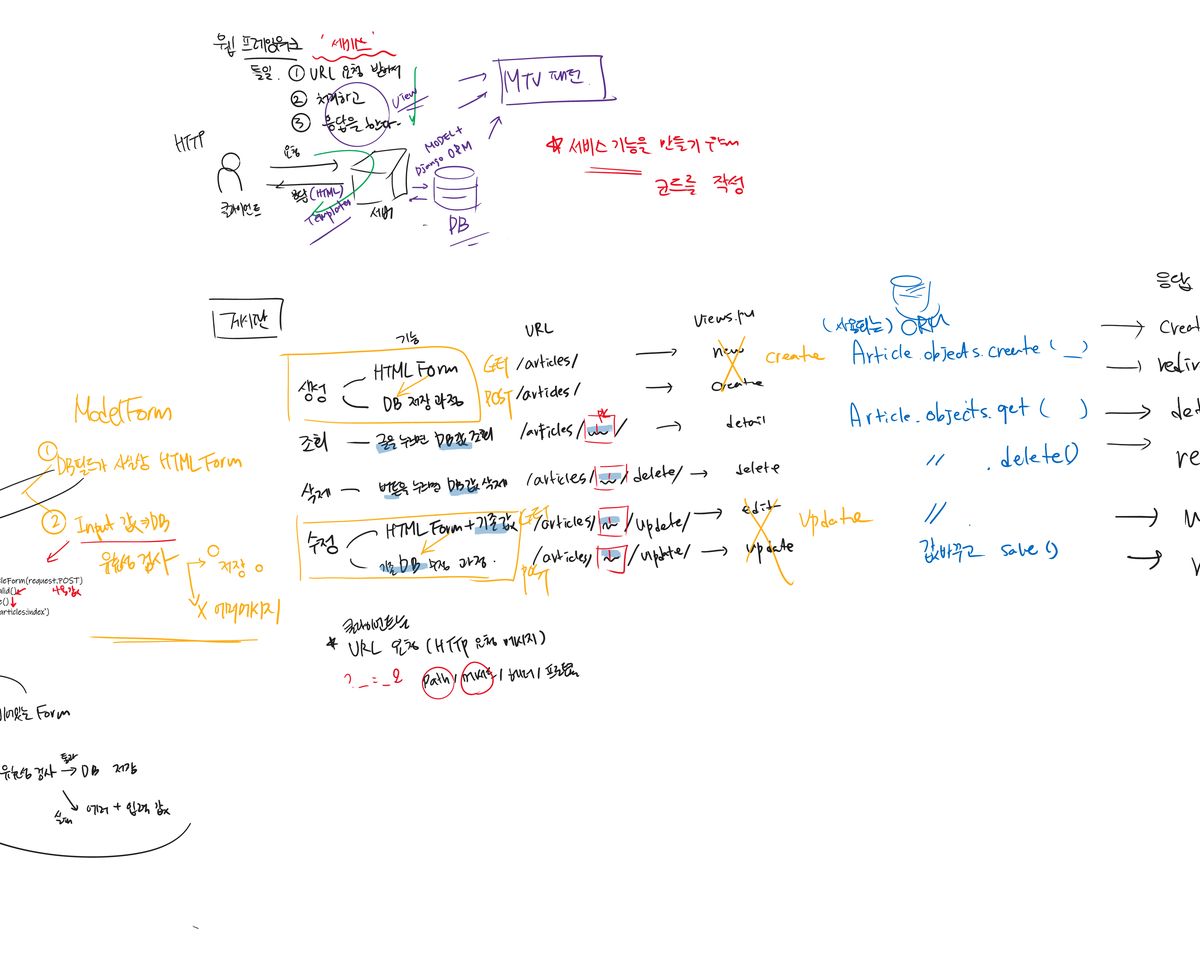 웹 프레임워크 '서비스'
들일. ① URL 요청 받아서
② 처리하고
③ 응답을 한다.
View
MTV 패턴.
HTTP
요청
응답 (HTML)
Template
클라이언트
서버
MODEL +
Django ORM
DB
* 서비스 기능을 만들기 위해
코드를 작성
게시판
기능 URL Views.py
(사용되는) ORM
응답
생성
HTML Form GET /articles/ → new
DB 저장 과정 POST /articles/ → create
create Article.objects.create( _ ) → creat
→ redir
조회 글을 누르면 DB값 조회 /articles/ pk / → detail Article.objects.get( ) → det
삭제 버튼을 누르면 DB값 삭제 /articles/ /delete/ → delete 〃 .delete() → re
수정
HTML Form + 기존값 GET /articles/ /update/ → edit
기존 DB 수정 과정. POST /articles/ /update/ → update
update 〃 .
값바꾸고 save()
ModelForm
① DB필드가 사실상 HTML Form
② Input 값 ⇒ DB
유효성 검사
○ 저장 ○
X 에러메시지
cleForm(request.POST)
alid()
e()
articles:index')
클라이언트는
* URL 요청 (HTTP 요청 메시지)
path / 메서드 / 헤더 /
비어있는 Form
유효성 검사 → DB 저장
통과
실패
에러 + 입력 값